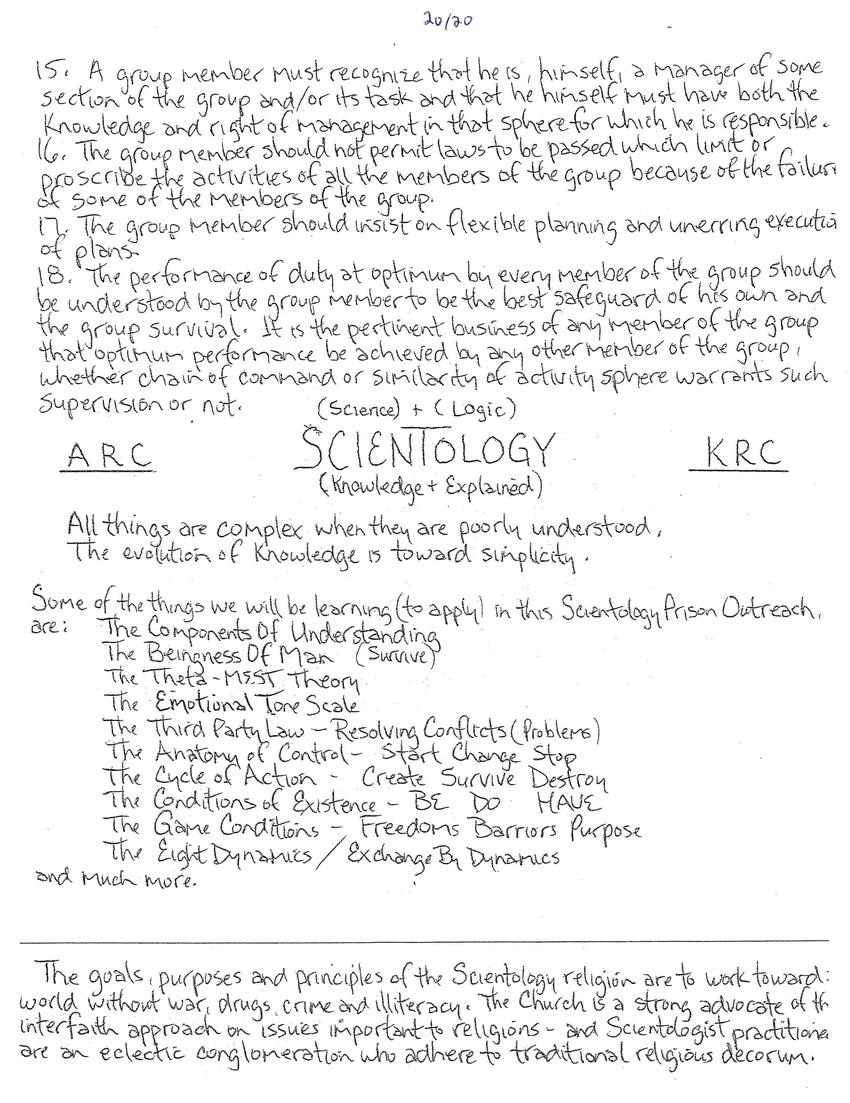 20/20
15. A group member must recognize that he is, himself, a manager of some
section of the group and/or its task and that he himself must have both the
Knowledge and right of management in that sphere for which he is responsible.
16. The group member should not permit laws to be passed which limit or
proscribe the activities of all the members of the group because of the failur
of some of the members of the group.
17. The group member should insist on flexible planning and unerring executio
of plans.
18. The performance of duty at optimum by every member of the group should
be understood by the group member to be the best safeguard of his own and
the group survival. It is the pertinent business of any member of the group
that optimum performance be achieved by any other member of the group,
whether chain of command or similarity of activity sphere warrants such
supervision or not. (Science) + (Logic)
ARC SCIENTOLOGY KRC
(Knowledge + Explained)
All things are complex when they are poorly understood,
The evolution of Knowledge is toward simplicity.
Some of the things we will be learning (to apply) in this Scientology Prison Outreach,
are: The Components Of Understanding
The Beingness Of Man (Survive)
The Theta-MEST Theory
The Emotional Tone Scale
The Third Party Law - Resolving Conflicts (Problems)
The Anatomy of Control - Start Change Stop
The Cycle of Action - Create Survive Destroy
The Conditions of Existence - BE DO HAVE
The Game Conditions - Freedoms Barriors Purpose
The Eight Dynamics / Exchange By Dynamics
and much more.
The goals, purposes and principles of the Scientology religion are to work toward:
world without war, drugs, crime and illiteracy. The Church is a strong advocate of th
interfaith approach on issues important to religions - and Scientologist practitione
are an eclectic conglomeration who adhere to traditional religious decorum.